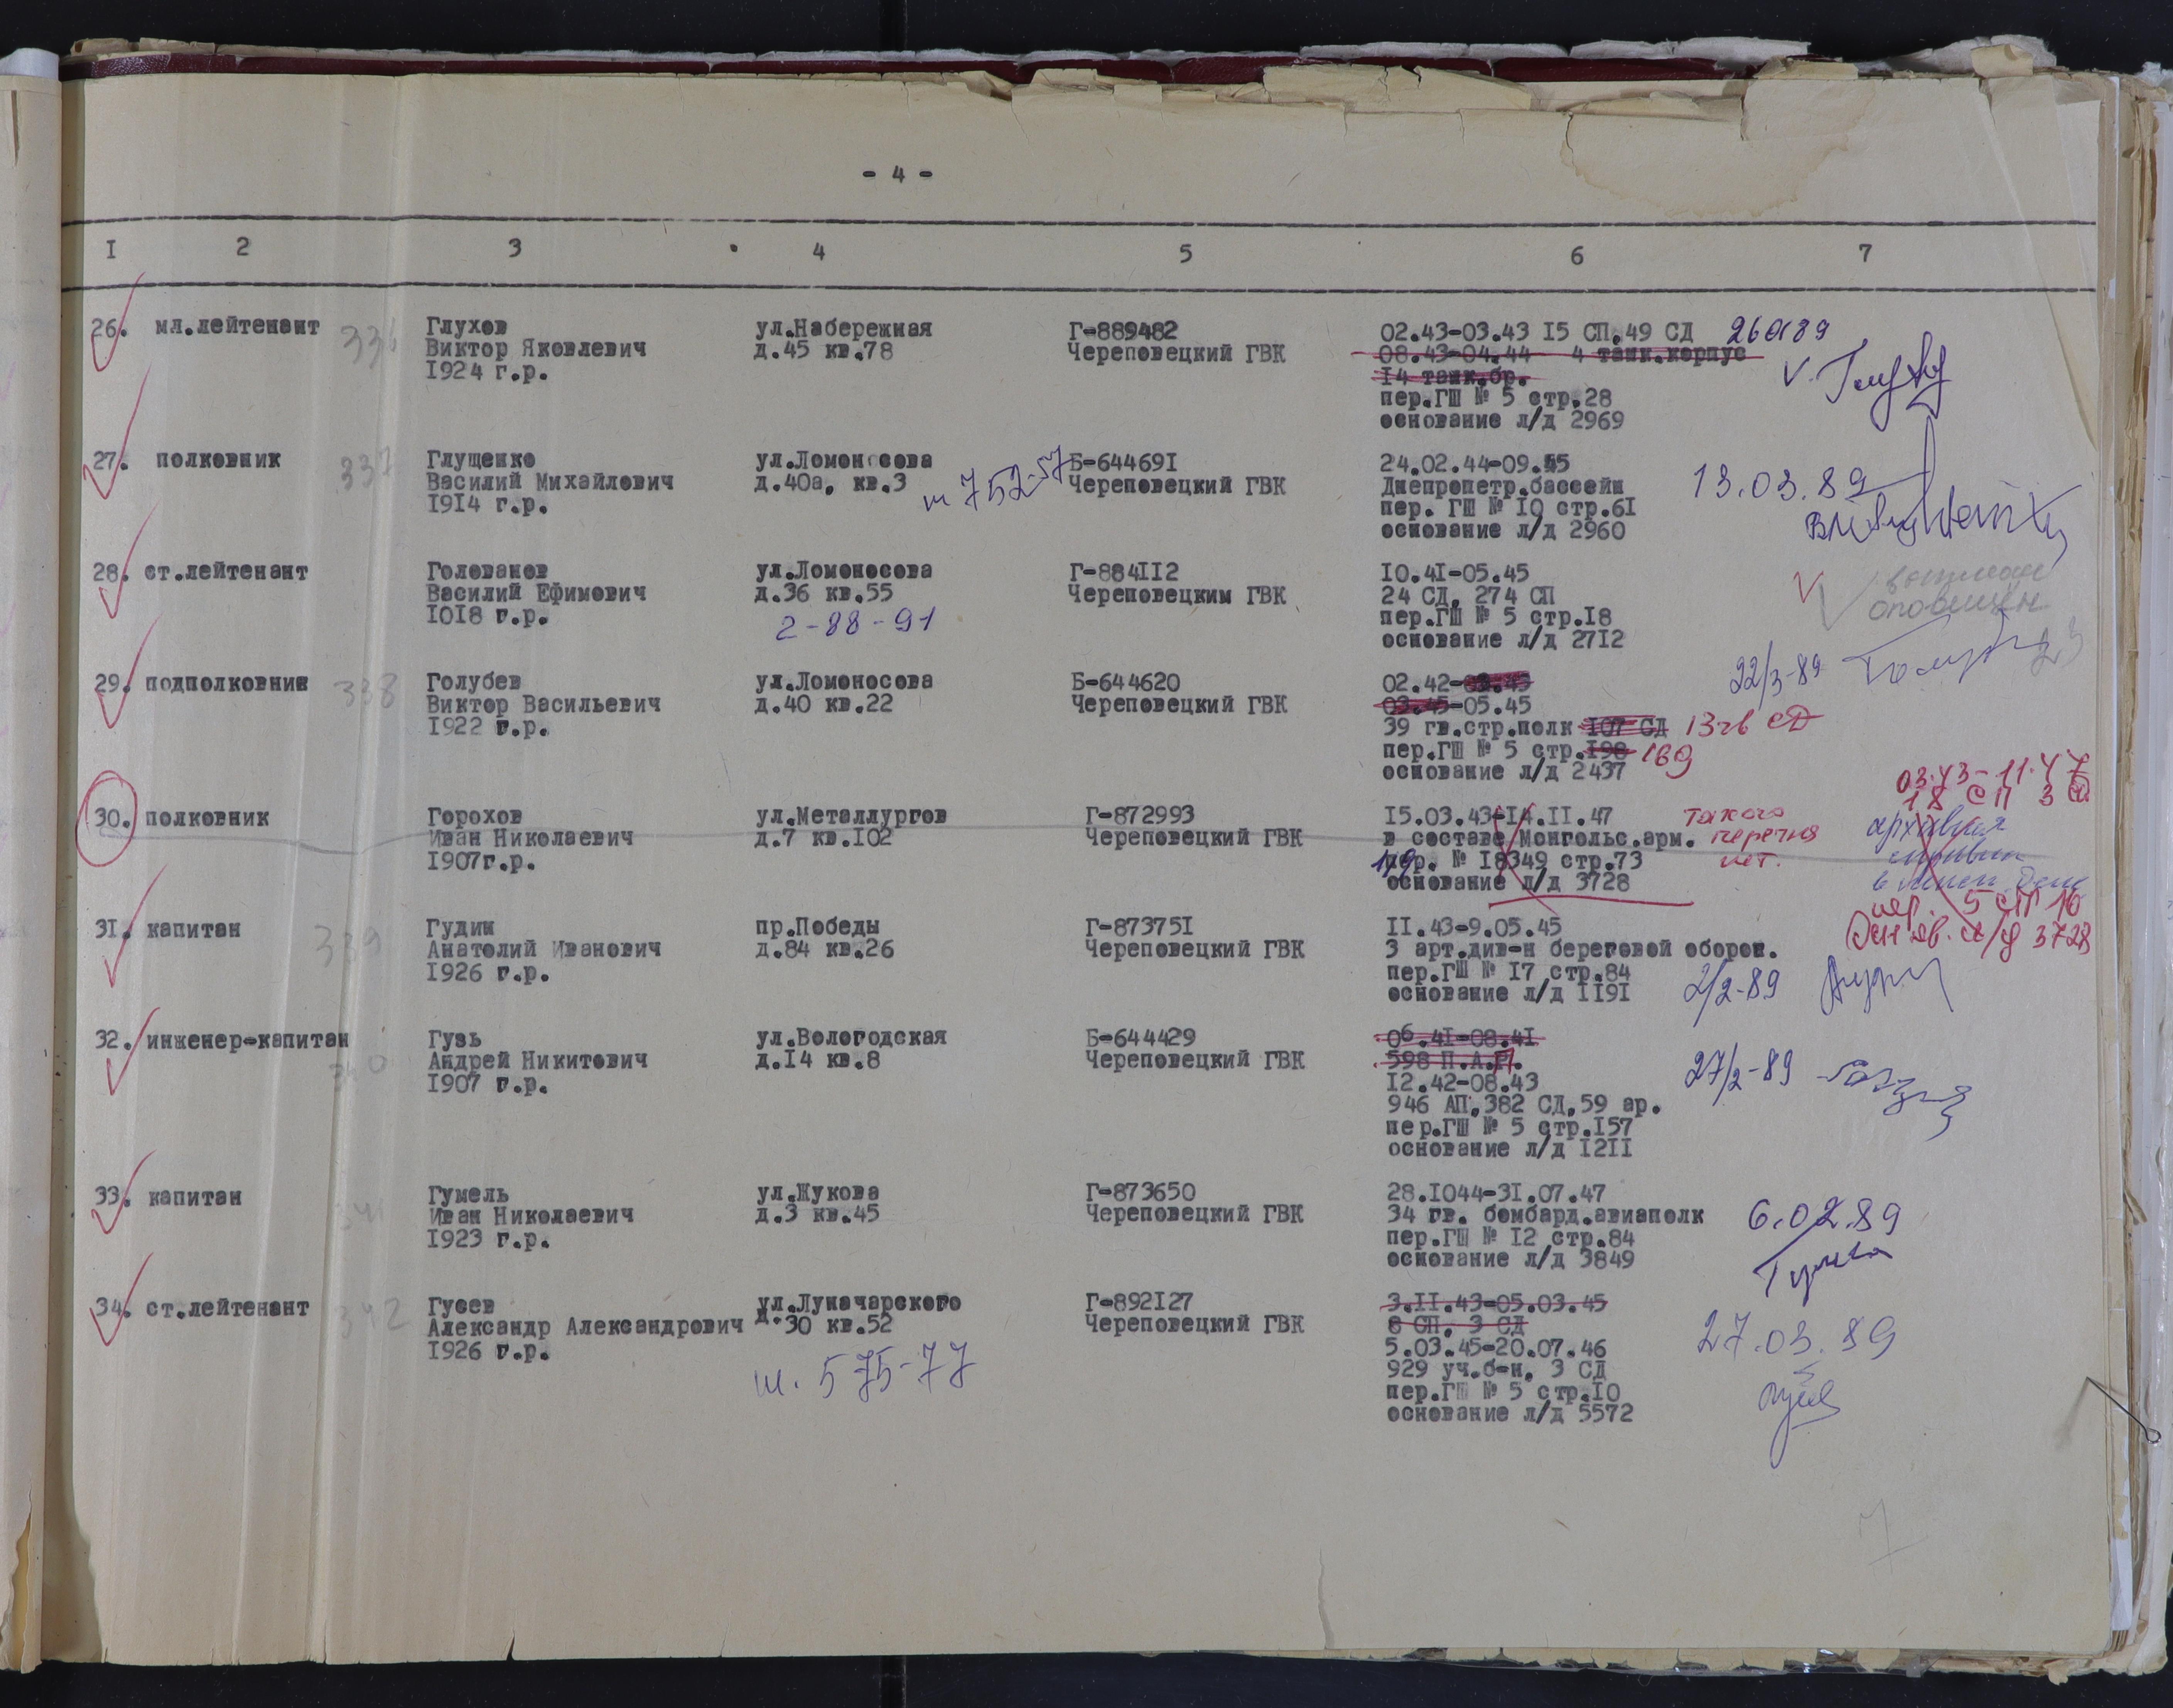 - 4 -
I 2 3 4 5 6 7
26. мл.лейтенант
336
Глухов
Виктор Яковлевич
I924 г.р.
ул.Набережная
д.45 кв.78
Г-889482
Череповецкий ГВК
02.43-03.43 I5 СП.49 СД
08.43-04.44 4 танк.корпус
I4 танк.бр.
пер.ГШ № 5 стр.28
основание л/д 2969
V.
27. полковник
337
Глущенко
Василий Михайлович
I9I4 г.р.
ул.Ломоносова
д.40а, кв.3
т 7 52-57
Б-64469I
Череповецкий ГВК
24.02.44-09.45
Днепропетр.бассейн
пер. ГШ № I0 стр.6I
основание л/д 2960
13.03.89
28. ст.лейтенант
Голованов
Василий Ефимович
I0I8 г.р.
ул.Ломоносова
д.36 кв.55
2-88-91
Г-884II2
Череповецким ГВК
I0.4I-05.45
24 СД, 274 СП
пер.ГШ № 5 стр.I8
основание л/д 27I2
29. подполковник
338
Голубев
Виктор Васильевич
I922 г.р.
ул.Ломоносова
д.40 кв.22
Б-644620
Череповецкий ГВК
02.42-
03.45-05.45
39 гв.стр.полк I07 СД 13 гв СД
пер.ГШ № 5 стр.I98 169
основание л/д 2437
22/3-89
30. полковник
Горохов
Иван Николаевич
I907г.р.
ул.Металлургов
д.7 кв.I02
Г-872993
Череповецкий ГВК
I5.03.43-I4.II.47
в составе Монгольс.арм.
пер. № I8349 стр.73
основание л/д 3728
такого
перечня
нет.
03.43-11.47
18 СП 3 СД
архивная
пер. 5 стр 10
Осн ов. л/д 3728
31. капитан
339
Гудин
Анатолий Иванович
I926 г.р.
пр.Победы
д.84 кв.26
Г-87375I
Череповецкий ГВК
II.43-9.05.45
3 арт.див-н береговой оборон.
пер.ГШ № I7 стр.84
основание л/д II9I
2/2-89
32. инженер-капитан
340
Гузь
Андрей Никитович
I907 г.р.
ул.Вологодская
д.I4 кв.8
Б-644429
Череповецкий ГВК
06.4I-08.4I
598 П.А.П.
I2.42-08.43
946 АП,382 СД,59 ар.
пер.ГШ № 5 стр.I57
основание л/д I2II
27/2-89
33. капитан
341
Гумель
Иван Николаевич
I923 г.р.
ул.Жукова
д.3 кв.45
Г-873650
Череповецкий ГВК
28.I044-3I.07.47
34 гв. бомбард.авиаполк
пер.ГШ № I2 стр.84
основание л/д 3849
6.02.89
34. ст.лейтенант
342
Гусев
Александр Александрович
I926 г.р.
ул.Луначарского
д.30 кв.52
т. 575-77
Г-892I27
Череповецкий ГВК
3.II.43-05.03.45
8 СП, 3 СД
5.03.45-20.07.46
929 уч.б-н, 3 СД
пер.ГШ № 5 стр.I0
основание л/д 5572
27.03.89
7